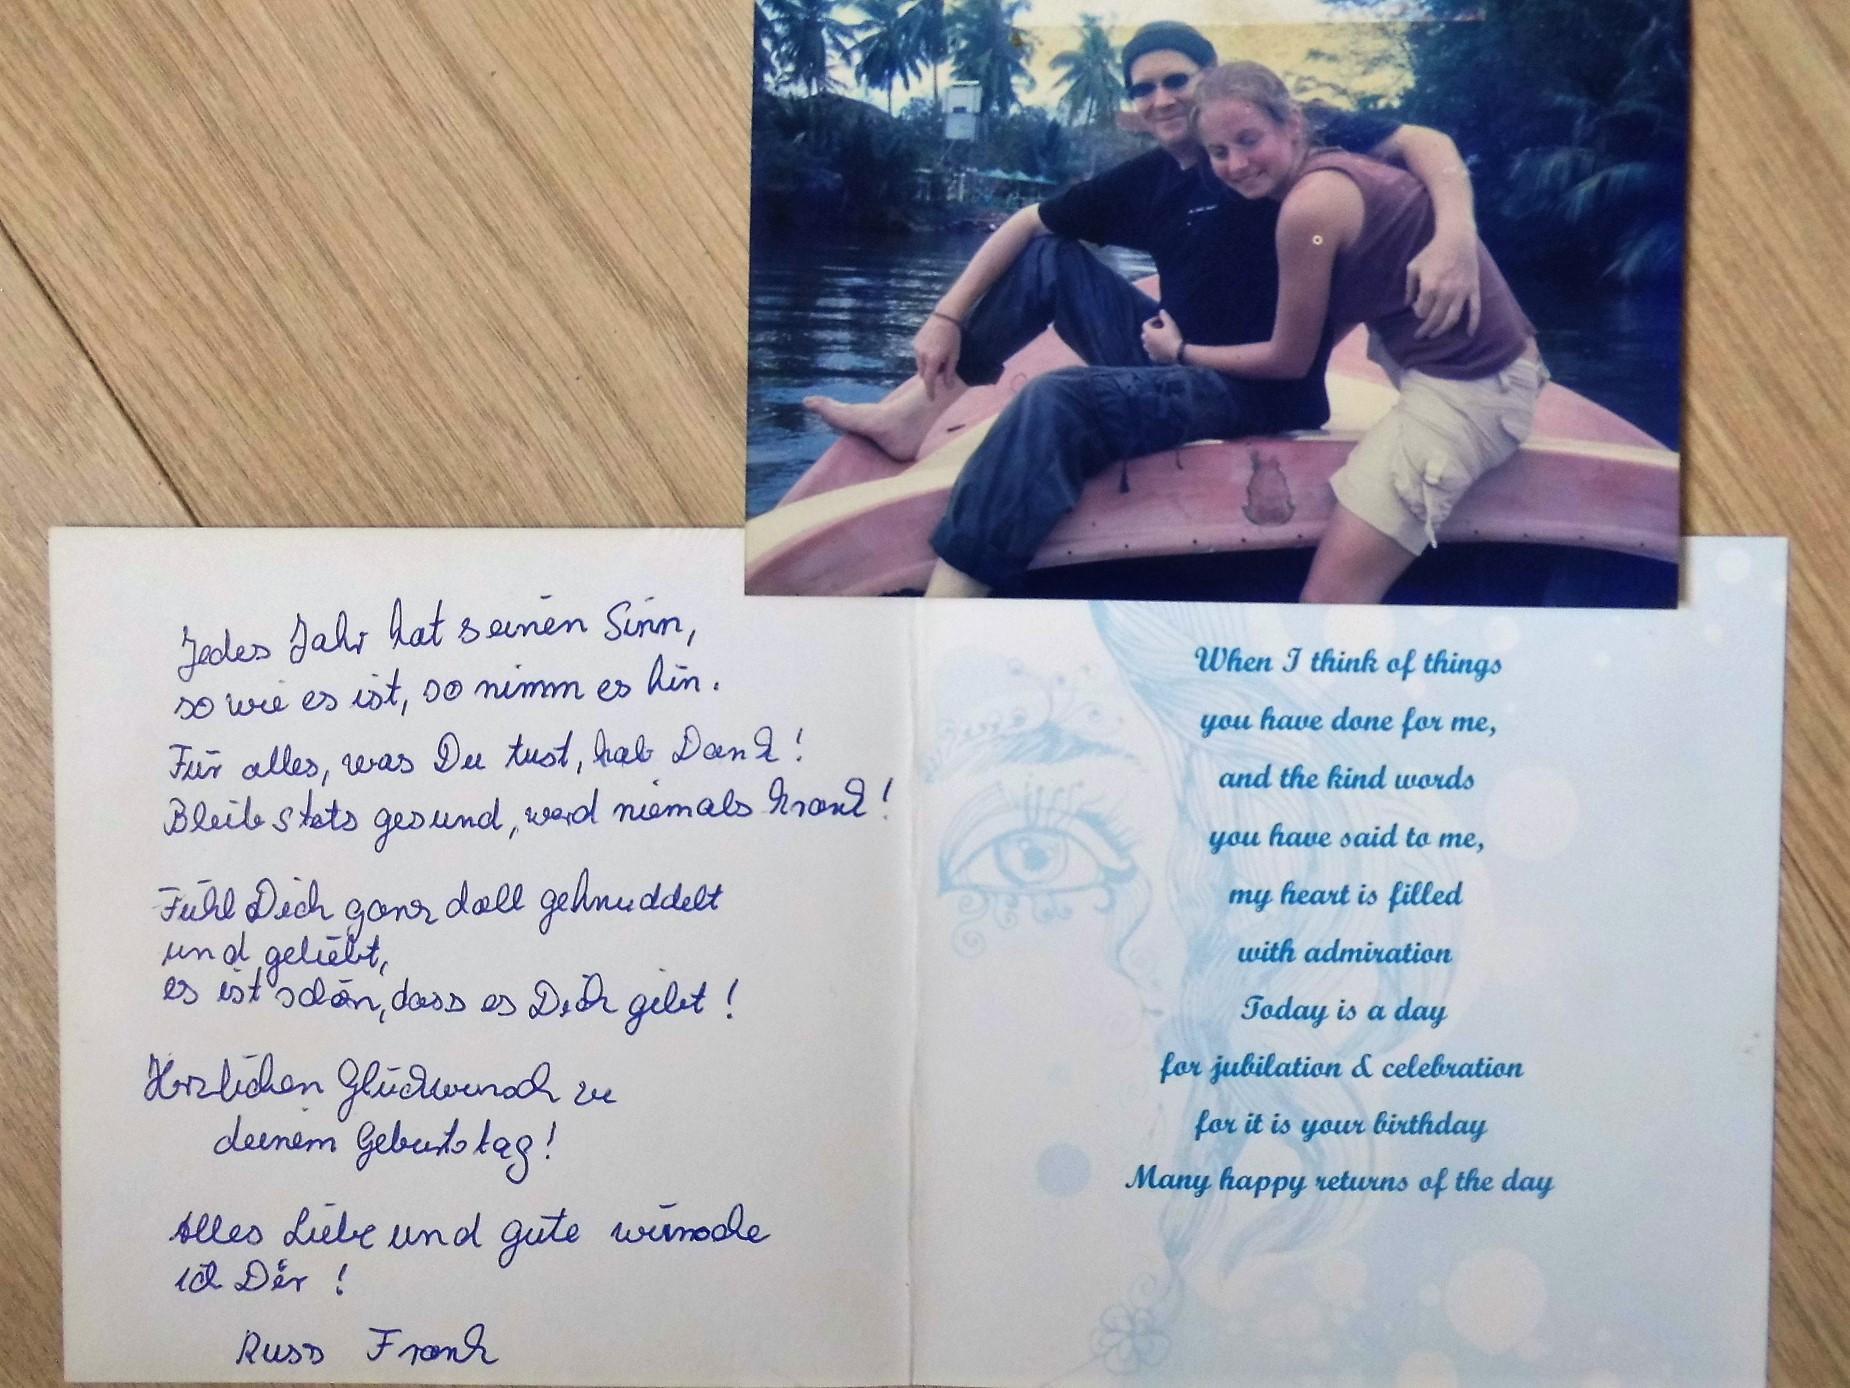 Jedes Jahr hat seinen Sinn,
so wie es ist, so nimm es hin.
Für alles, was Du tust, hab Dank!
Bleib stets gesund, werd niemals krank!
Fühl Dich ganz doll geknuddelt
und geliebt,
es ist schön, dass es Dich gibt!
Herzlichen Glückwunsch zu
deinem Geburtstag!
Alles Liebe und gute wünsche
ich Dir!
Russ Frank
When I think of things
you have done for me,
and the kind words
you have said to me,
my heart is filled
with admiration
Today is a day
for jubilation & celebration
for it is your birthday
Many happy returns of the day